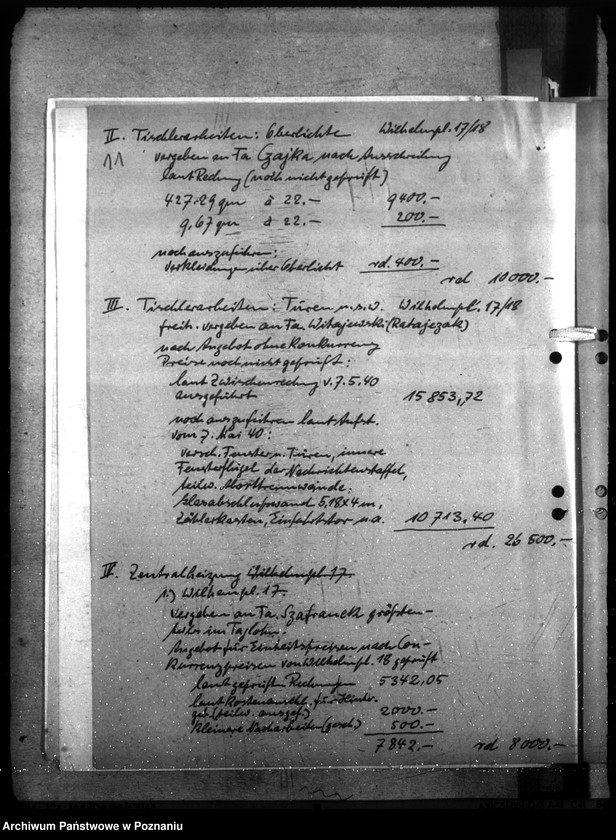 II. Tischlerarbeiten: Oberlichte Wilhelmpl. 17/18
11 vergeben an Fa Czajka nach Ausschreibung
laut Rechng (noch nicht geprüft)
427.29 qm à 22.- 9400.-
9,67 qm à 22.- 200.-
noch auszuführen:
Verkleidungen über Oberlicht rd. 400.-
rd 10000.-
III. Tischlerarbeiten: Türen u.s.w. Wilhelmpl. 17/18
freih. vergeben an Fa. Witajewski (Ratajezak)
nach Angebot ohne Konkurrenz
Preise noch nicht geprüft:
laut Zwischenrechng v. 7.5.40
ausgeführt 15853,72
noch auszuführen laut Aufst.
vom 7. Mai 40:
versch. Fenster u. Türen, innere
Fensterflügel der Nachrichtenstaffel,
teilw. Aborttrennwände,
Glasabschlusswand 5,18x4 m,
Zählerkasten, Einfahrtstor u.a. 10713,40
rd. 26500.-
IV. Zentralheizung Wilhelmpl 17.
1.) Wilhelmpl. 17.
vergeben an Fa. Szafranek grössten-
teils im Taglohn.
Angebot für Einheitspreisen nach Kon-
kurrenzpreisen von Wilhelmpl. 18 geprüft
laut geprüft. Rechnungen 5342,05
laut Kostenanschl. für
(teilw. ausgef.) 2000.-
Kleinere Nacharbeiten (gesch.) 500.-
7842.- rd 8000.-
Archiwum Państwowe w Poznaniu